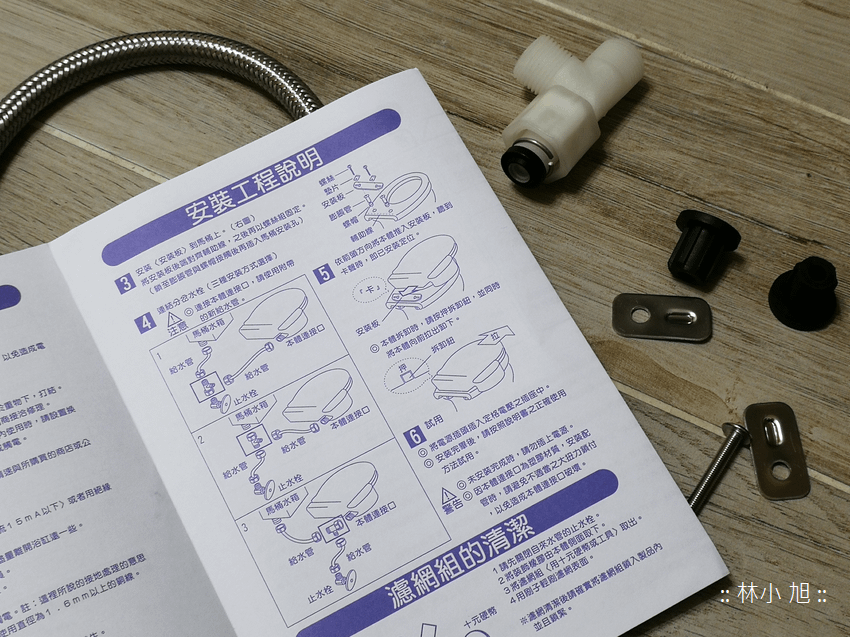 安裝工程說明
3 安裝〈安裝板〉到馬桶上。（右圖）
將安裝板後端對齊輔助線，之後再以螺絲組固定。
（鎖至膨脹管與螺帽接觸後再插入馬桶安裝孔）
螺絲
墊片
安裝板
膨脹管
螺帽
輔助線
4 連結分岔水栓（三種安裝方式選擇）
注意
◎ 連接本體連接口，請使用附帶
的新給水管。
1
馬桶水箱
給水管
本體連接口
給水管
止水栓
2
馬桶水箱
本體連接口
給水管
給水管
止水栓
3
馬桶水箱
本體連接口
給水管
給水管
止水栓
5 依前面方向將本體推入安裝板，聽到
卡聲時，即已安裝定位。
『卡』
安裝板
◎ 本體拆卸時，請按押拆卸鈕，並同時
將本體向前拉出卸下。
押
拆卸鈕
拉
6 試用
◎ 將電源插頭插入定格電壓之插座中。
◎ 安裝完畢後，請按照說明書之正確使用
方法試用。
警告
◎ 未安裝完成時，請勿插上電源。
◎ 因本體連接口為塑膠材質，安裝配
管時，請避免不適當之大扭力鎖付
，以免造成本體連接口破壞。
濾網組的清潔
1 請先關閉自來水管的止水栓。
2 將裝飾橡膠由本體側面取下。
3 將濾網組〈用十元硬幣或工具〉取出。
4 用刷子輕刷濾網表面。
※濾網清潔後請確實將濾網組鎖入製品內
並目鎖緊。
十元硬幣
，以免造成電
重物下，打結。
內使用時，請設置換
與所購買的商店或公
１５ｍＡ以下〉或者用絕緣
量離開浴缸遠一些。
電。註：這裡所說的接地處理的意思
使用直徑為１．６ｍｍ以上的銅線。
:: 林小旭 ::